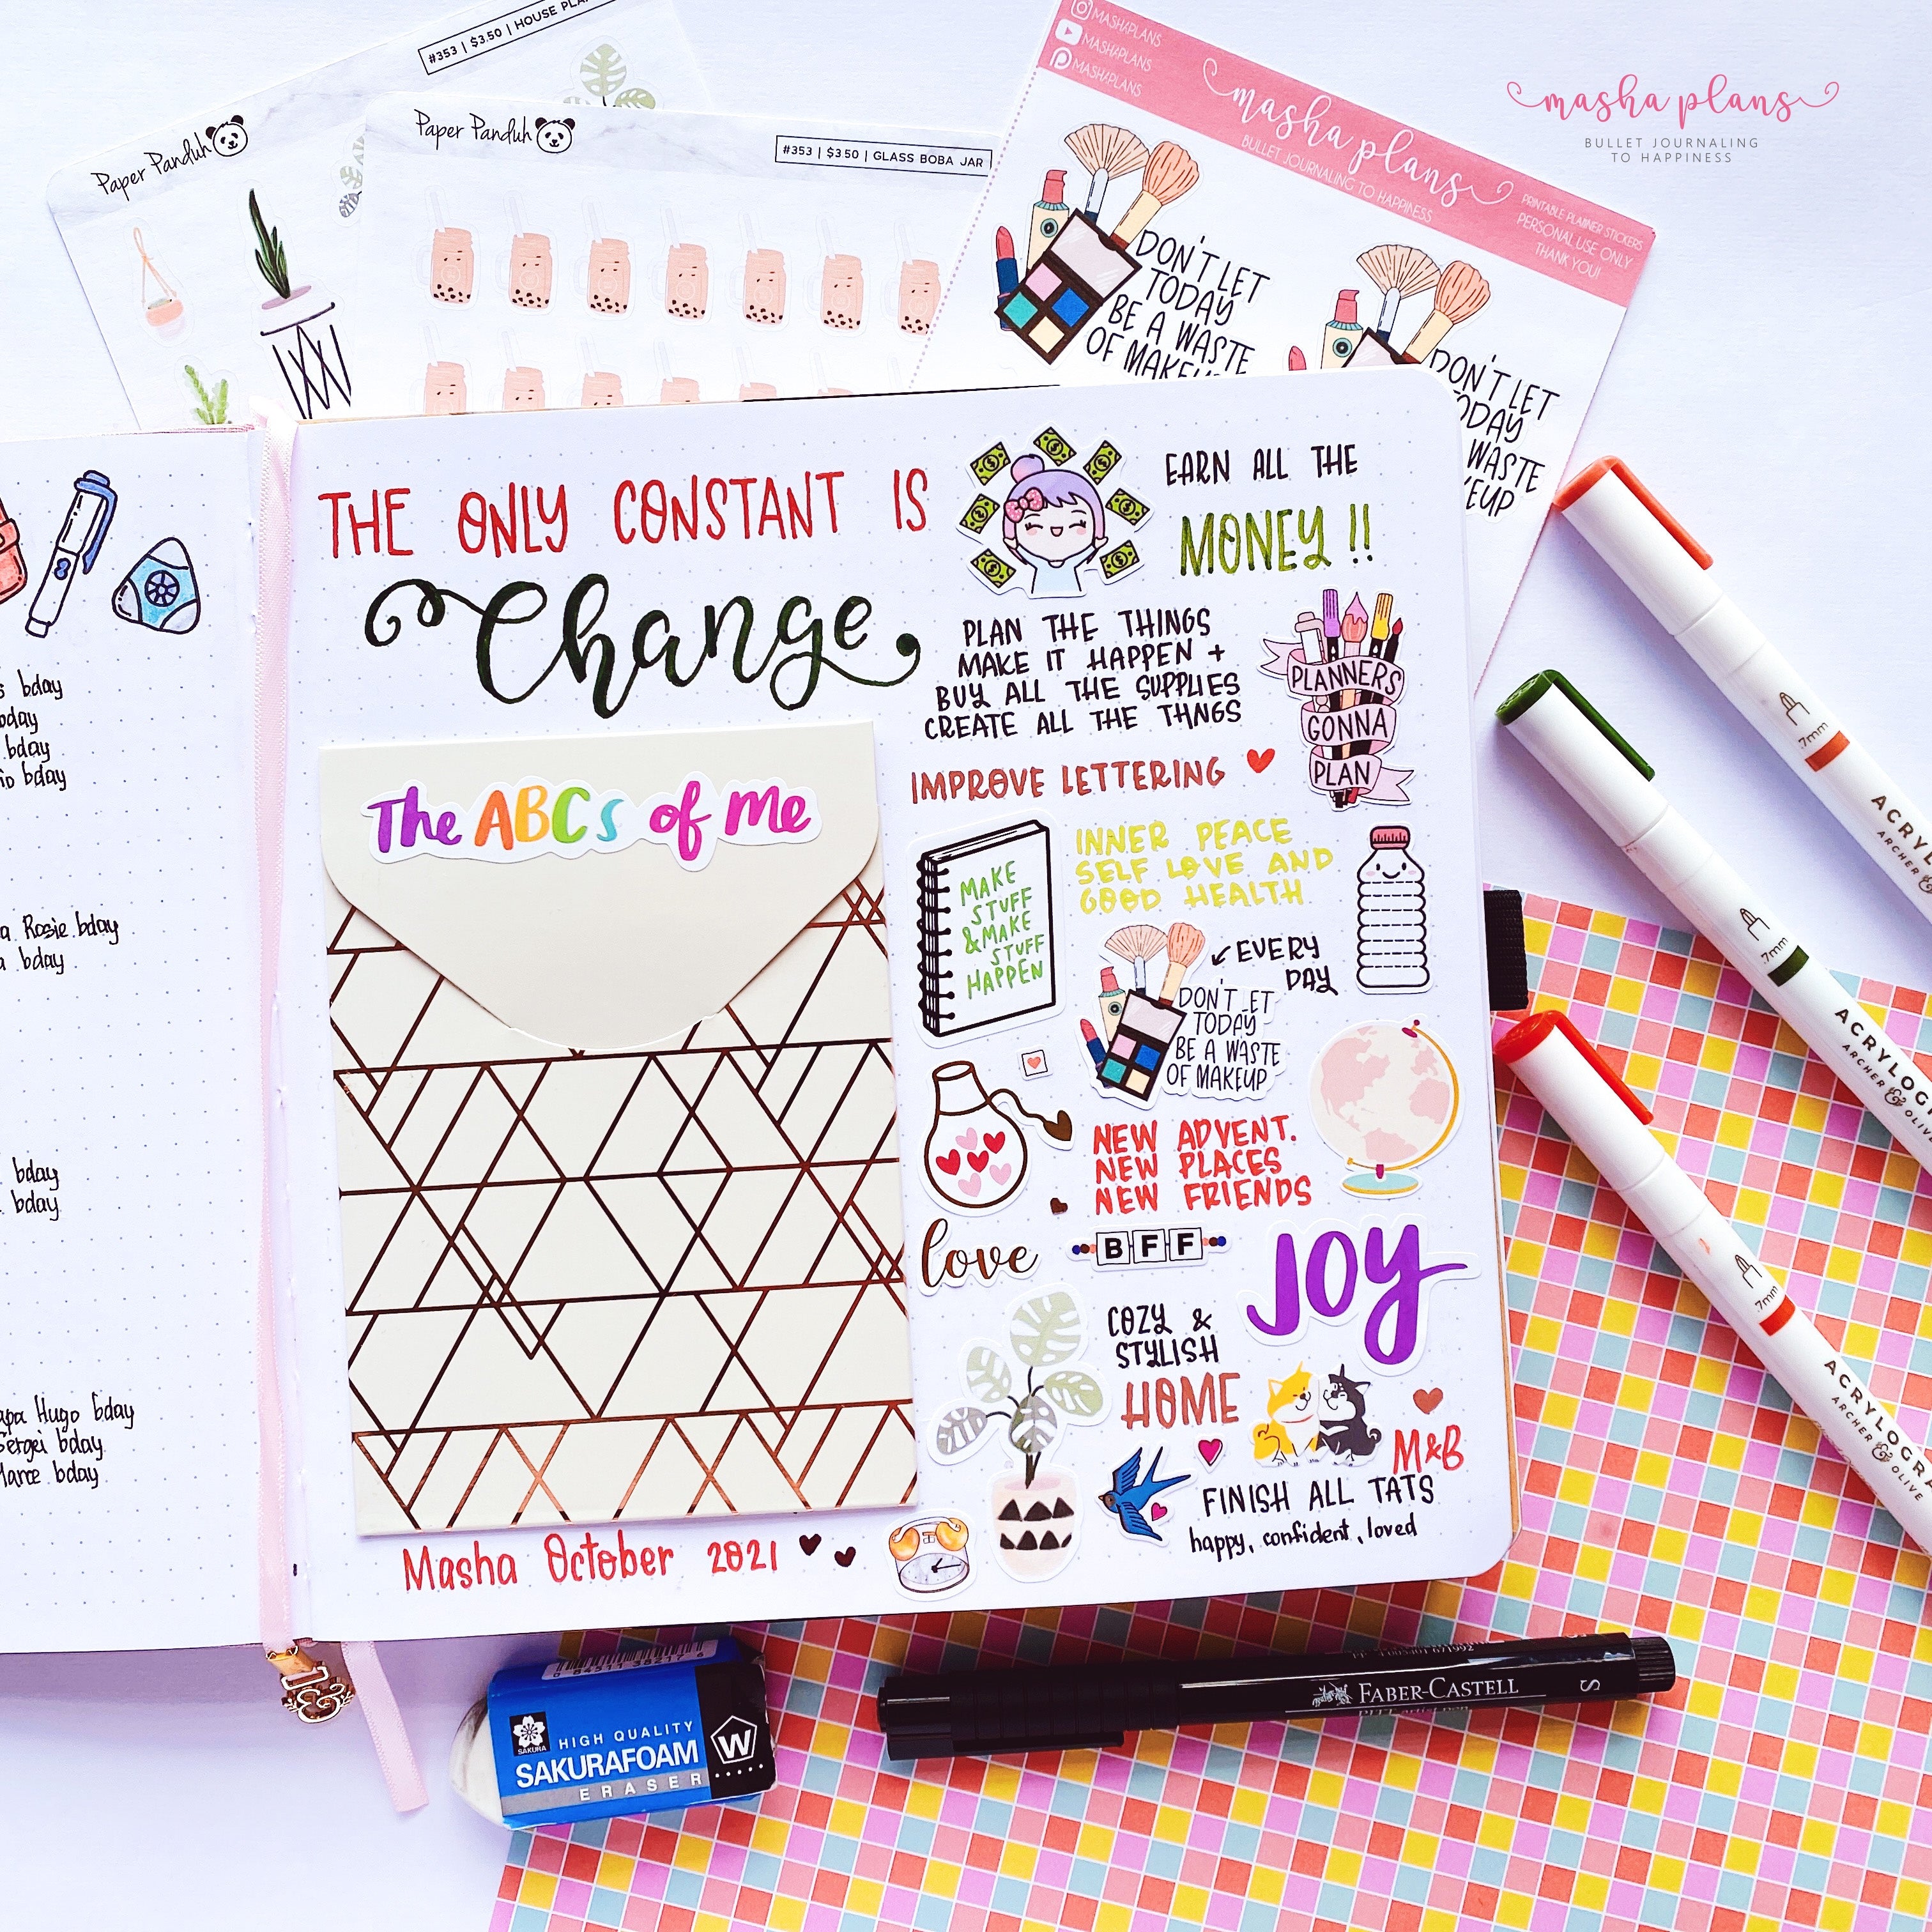 #353 | $3.50 | HOUSE
Paper Panduh
Paper Panduh
#353 | $3.50 | GLASS BOBA JAR
MASHAPLANS
MASHAPLANS
MASHAPLANS
masha plans
BULLET JOURNALING TO HAPPINESS
PRINTABLE PLANNER STICKERS
PERSONAL USE ONLY
THANK YOU!
DON'T LET
TODAY
BE A WASTE
OF
DON'T LET
WASTE
masha plans
BULLET JOURNALING
TO HAPPINESS
bday
bday
bday
Rosie bday
bday
bday
bday
Hugo bday
Sergei bday
bday
THE ONLY CONSTANT IS
Change
The ABCs of me
Masha October 2021
EARN ALL THE
MONEY !!
PLAN THE THINGS
MAKE IT HAPPEN +
BUY ALL THE SUPPLIES
CREATE ALL THE THNGS
PLANNERS
GONNA
PLAN
IMPROVE LETTERING
MAKE
STUFF
&MAKE
STUFF
HAPPEN
INNER PEACE
SELF LOVE AND
GOOD HEALTH
EVERY
DAY
DON'T LET
TODAY
BE A WASTE
OF MAKEUP
NEW ADVENT.
NEW PLACES
NEW FRIENDS
love
BFF
JOY
COZY &
STYLISH
HOME
M&B
FINISH ALL TATS
happy, confident, loved
.7mm
ARCHER &
.7mm
ARCHER & OLIVE
.7mm
ARCHER & OLIVE
SAKURA
HIGH QUALITY
SAKURAFOAM
ERASER
W
FABER-CASTELL
S